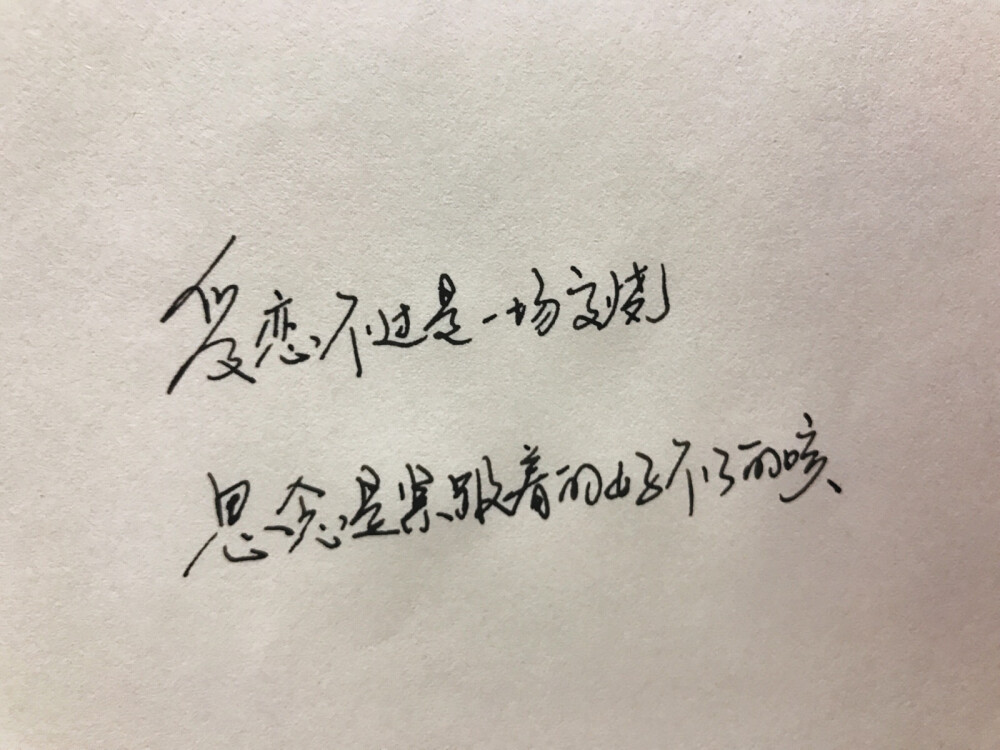 爱恋不过是一场高烧
思念是紧跟着的好不了的咳